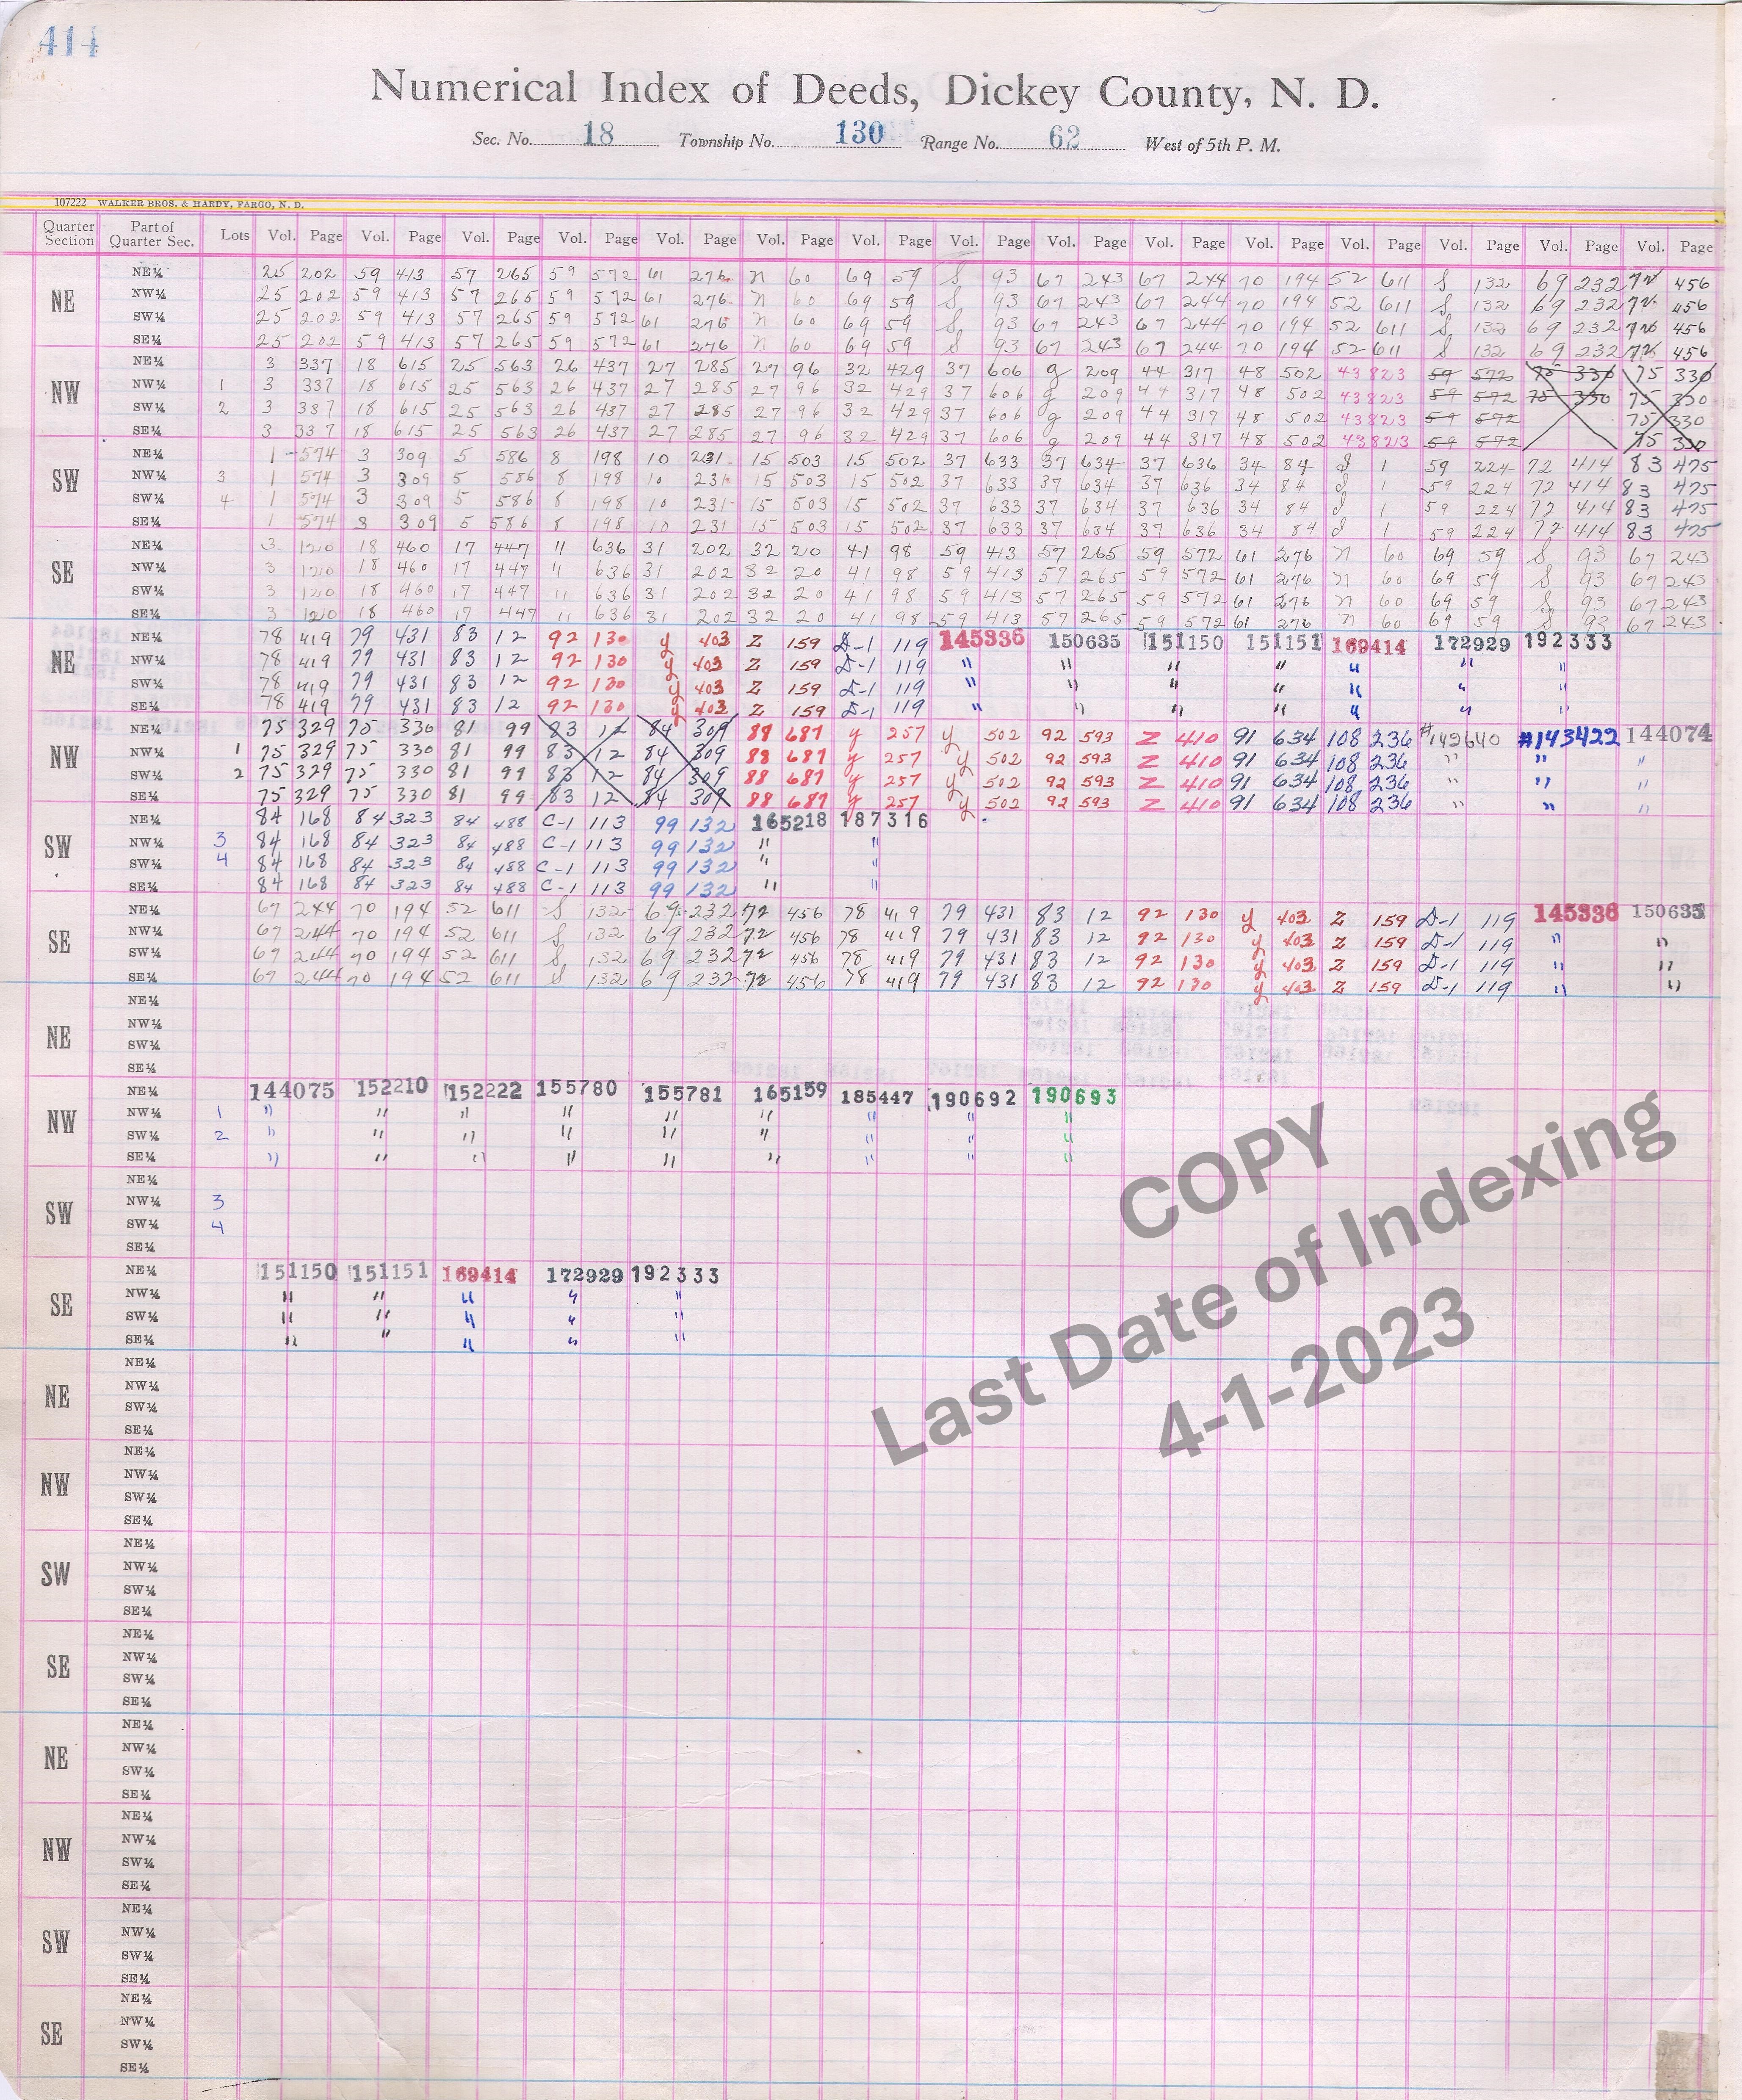 414
Numerical Index of Deeds, Dickey County, N. D.
Sec. No. 18 Township No. 130 Range No. 62 West of 5th P. M.
107222 WALKER BROS. & HARDY, FARGO, N. D.
Quarter Section Part of Quarter Sec. Lots Vol. Page Vol. Page Vol. Page Vol. Page Vol. Page Vol. Page Vol. Page Vol. Page Vol. Page Vol. Page Vol. Page Vol. Page Vol. Page Vol. Page Vol. Page
NE
NE¼ 25 202 59 413 57 265 59 572 61 276 n 60 69 59 S 93 67 243 67 244 70 194 52 611 S 132 69 232 72 456
NW¼ 25 202 59 413 57 265 59 572 61 276 n 60 69 59 S 93 67 243 67 244 70 194 52 611 S 132 69 232 72 456
SW¼ 25 202 59 413 57 265 59 572 61 276 n 60 69 59 S 93 67 243 67 244 70 194 52 611 S 132 69 232 72 456
SE¼ 25 202 59 413 57 265 59 572 61 276 n 60 69 59 S 93 67 243 67 244 70 194 52 611 S 132 69 232 72 456
NW
NE¼ 3 337 18 615 25 563 26 437 27 285 27 96 32 429 37 606 g 209 44 317 48 502 43823 59 572 75 330 75 330
NW¼ 1 3 337 18 615 25 563 26 437 27 285 27 96 32 429 37 606 g 209 44 317 48 502 43823 59 572 75 330 75 330
SW¼ 2 3 337 18 615 25 563 26 437 27 285 27 96 32 429 37 606 g 209 44 317 48 502 43823 59 572 75 330
SE¼ 3 337 18 615 25 563 26 437 27 285 27 96 32 429 37 606 g 209 44 317 48 502 43823 59 572 75 330
SW
NE¼ 1 574 3 309 5 586 8 198 10 231 15 503 15 502 37 633 37 634 37 636 34 84 1 59 224 72 414 83 475
NW¼ 3 1 574 3 309 5 586 8 198 10 231 15 503 15 502 37 633 37 634 37 636 34 84 1 59 224 72 414 83 475
SW¼ 4 1 574 3 309 5 586 8 198 10 231 15 503 15 502 37 633 37 634 37 636 34 84 1 59 224 72 414 83 475
SE¼ 1 574 3 309 5 586 8 198 10 231 15 503 15 502 37 633 37 634 37 636 34 84 1 59 224 72 414 83 475
SE
NE¼ 3 120 18 460 17 447 11 636 31 202 32 20 41 98 59 413 57 265 59 572 61 276 n 60 69 59 S 93 67 243
NW¼ 3 120 18 460 17 447 11 636 31 202 32 20 41 98 59 413 57 265 59 572 61 276 n 60 69 59 S 93 67 243
SW¼ 3 120 18 460 17 447 11 636 31 202 32 20 41 98 59 413 57 265 59 572 61 276 n 60 69 59 S 93 67 243
SE¼ 3 120 18 460 17 447 11 636 31 202 32 20 41 98 59 413 57 265 59 572 61 276 n 60 69 59 S 93 67 243
NE
NE¼ 78 419 79 431 83 12 92 130 y 403 Z 159 D-1 119 145336 150635 151150 151151 169414 172929 192333
NW¼ 78 419 79 431 83 12 92 130 y 403 Z 159 D-1 119 " " " " " " "
SW¼ 78 419 79 431 83 12 92 130 y 403 Z 159 D-1 119 " " " " " " "
SE¼ 78 419 79 431 83 12 92 130 y 403 Z 159 D-1 119 " " " " " " "
NW
NE¼ 75 329 75 330 81 99 83 12 84 309 88 687 y 257 y 502 92 593 Z 410 91 634 108 236 #142640 #143422 144074
NW¼ 1 75 329 75 330 81 99 83 12 84 309 88 687 y 257 y 502 92 593 Z 410 91 634 108 236 " " "
SW¼ 2 75 329 75 330 81 99 83 12 84 309 88 687 y 257 y 502 92 593 Z 410 91 634 108 236 " " "
SE¼ 75 329 75 330 81 99 83 12 84 309 88 687 y 257 y 502 92 593 Z 410 91 634 108 236 " " "
SW
NE¼ 84 168 84 323 84 488 C-1 113 99 132 165218 187316
NW¼ 3 84 168 84 323 84 488 C-1 113 99 132 " "
SW¼ 4 84 168 84 323 84 488 C-1 113 99 132 " "
SE¼ 84 168 84 323 84 488 C-1 113 99 132 " "
SE
NE¼ 67 244 70 194 52 611 S 132 69 232 72 456 78 419 79 431 83 12 92 130 y 403 Z 159 D-1 119 145336 150635
NW¼ 67 244 70 194 52 611 S 132 69 232 72 456 78 419 79 431 83 12 92 130 y 403 Z 159 D-1 119 " "
SW¼ 67 244 70 194 52 611 S 132 69 232 72 456 78 419 79 431 83 12 92 130 y 403 Z 159 D-1 119 " "
SE¼ 67 244 70 194 52 611 S 132 69 232 72 456 78 419 79 431 83 12 92 130 y 403 Z 159 D-1 119 " "
NE
NE¼
NW¼
SW¼
SE¼
NW
NE¼ 144075 152210 152222 155780 155781 165159 185447 190692 190693
NW¼ 1 " " " " " " " " "
SW¼ 2 " " " " " " " " "
SE¼ " " " " " " " " "
SW
NE¼
NW¼ 3
SW¼ 4
SE¼
SE
NE¼ 151150 151151 169414 172929 192333
NW¼ " " " " "
SW¼ " " " " "
SE¼ " " " " "
COPY
Last Date of Indexing
4-1-2023
NE
NE¼
NW¼
SW¼
SE¼
NW
NE¼
NW¼
SW¼
SE¼
SW
NE¼
NW¼
SW¼
SE¼
SE
NE¼
NW¼
SW¼
SE¼
NE
NE¼
NW¼
SW¼
SE¼
NW
NE¼
NW¼
SW¼
SE¼
SW
NE¼
NW¼
SW¼
SE¼
SE
NE¼
NW¼
SW¼
SE¼